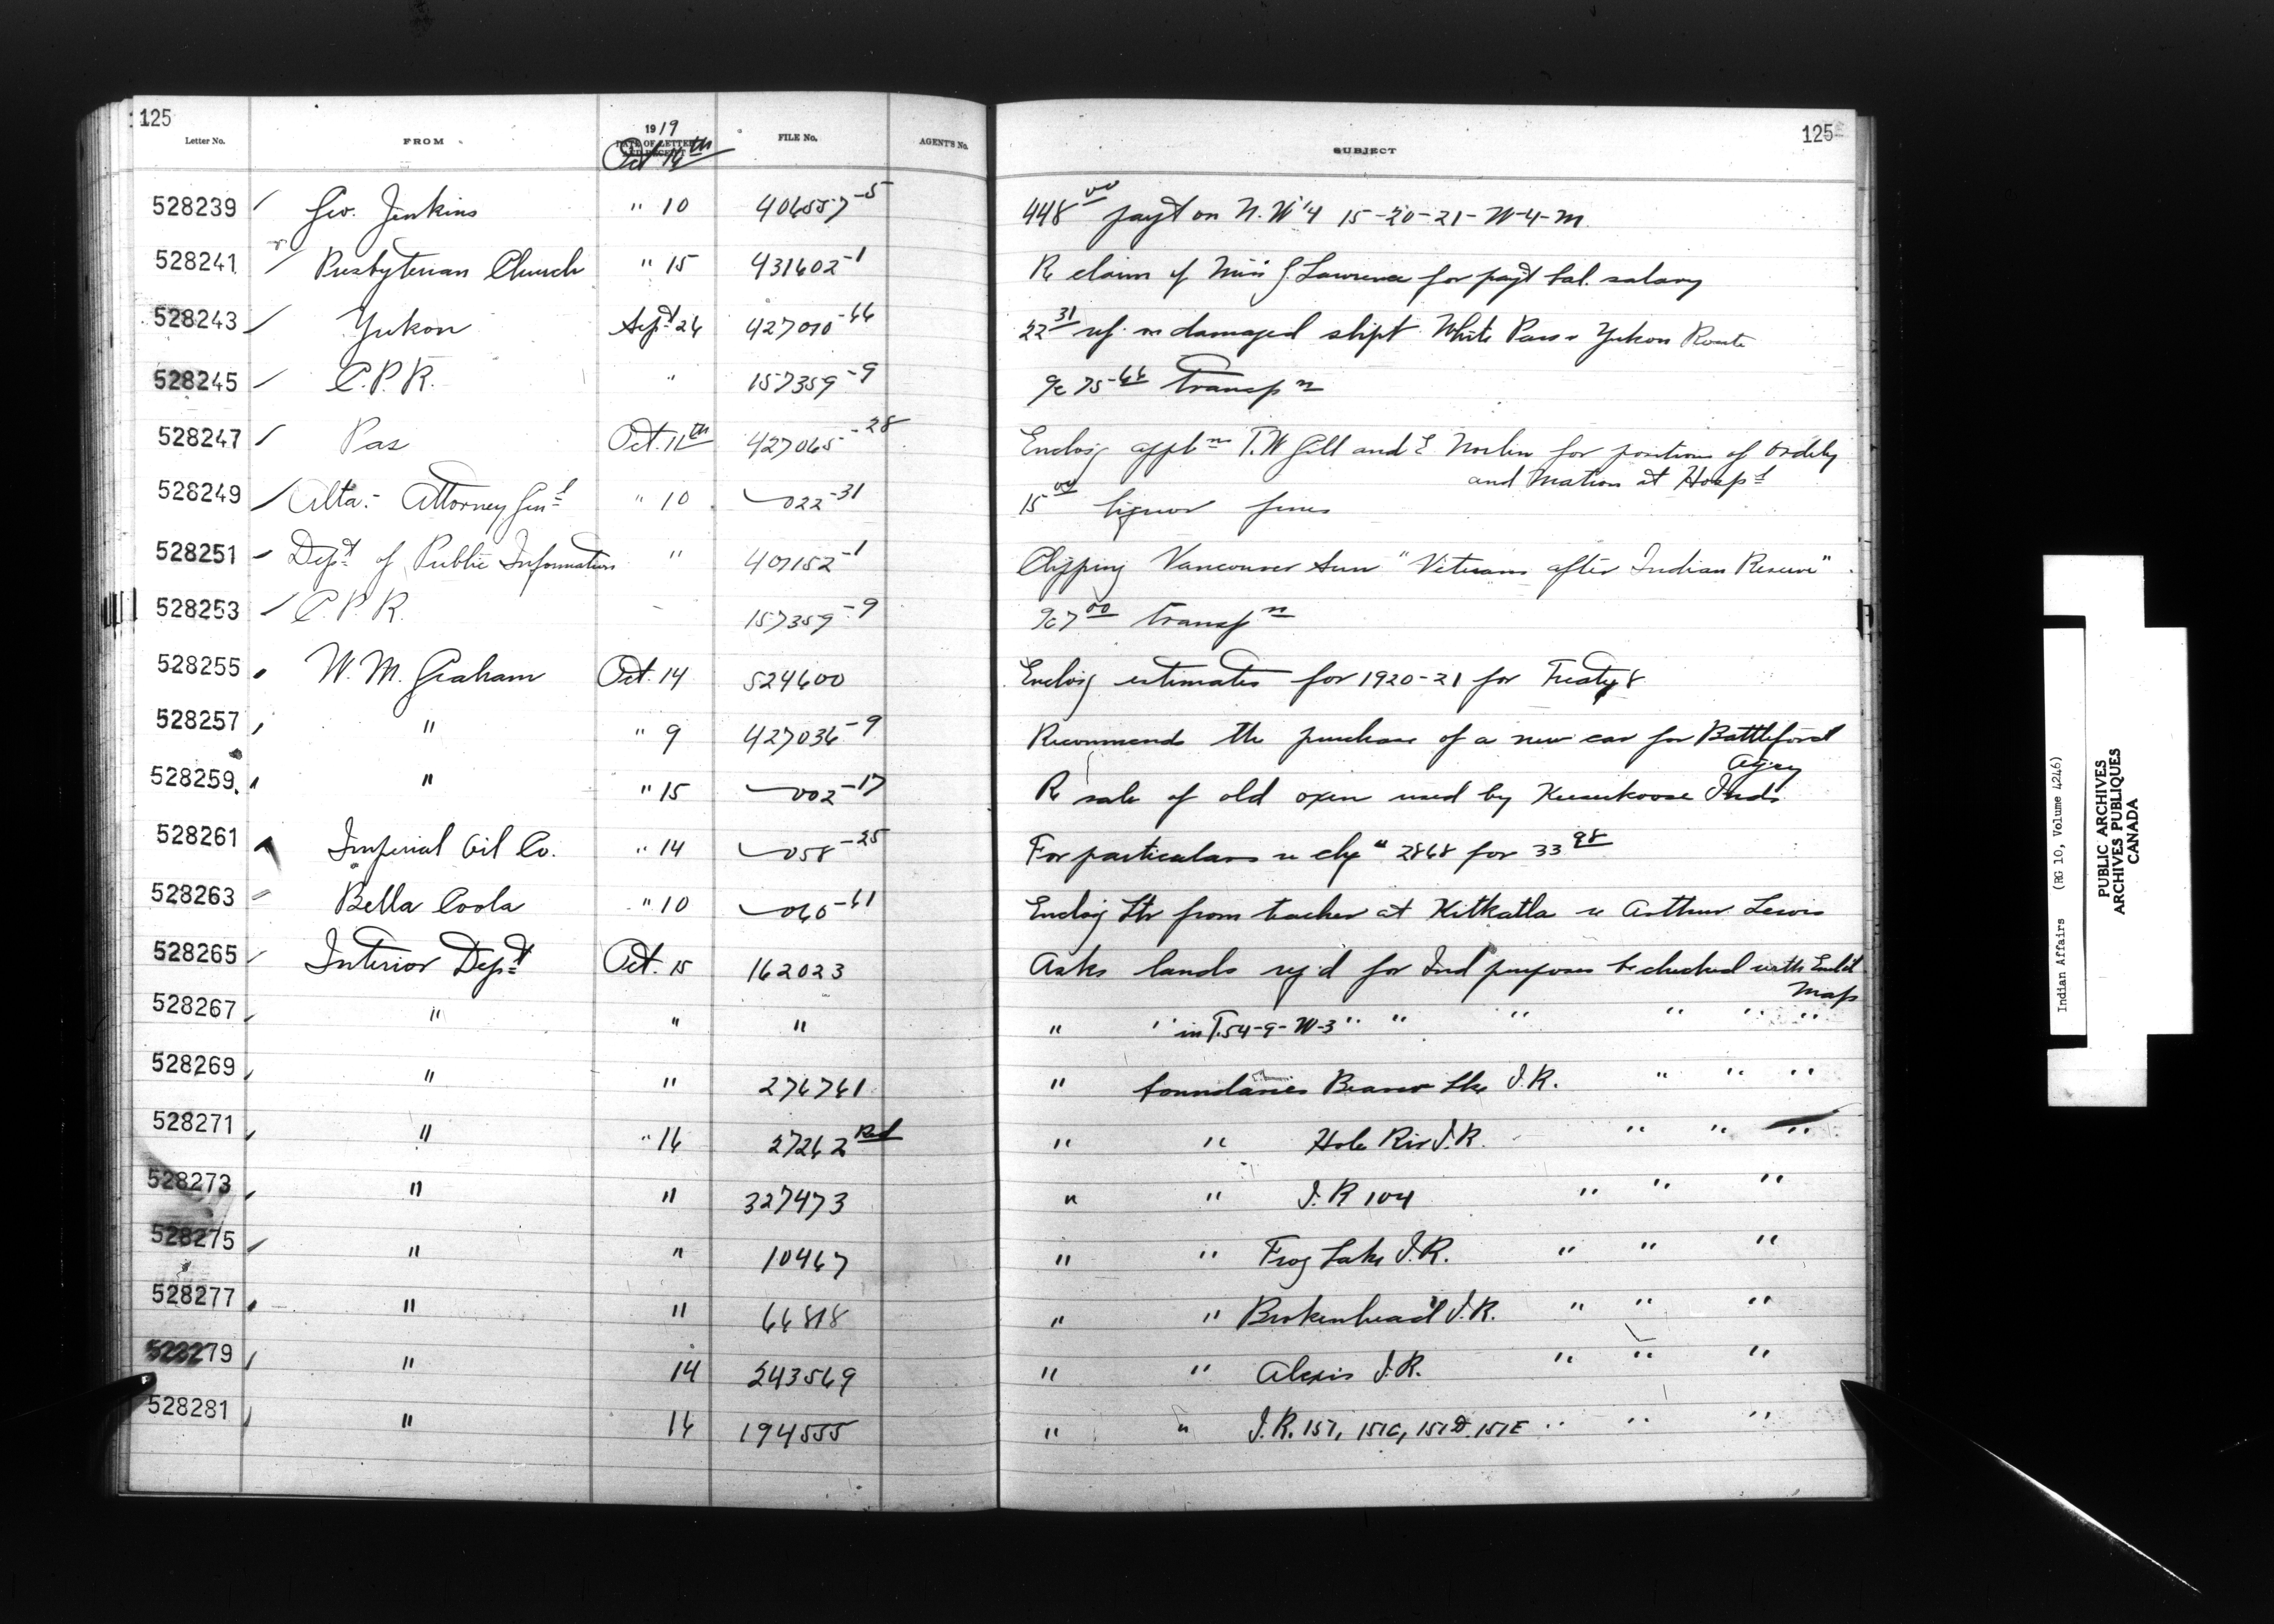 125
Letter No. FROM 1919 DATE OF LETTER AND RECEIPT FILE No. AGENT'S No.
Oct 16th
SUBJECT
125
528239 Geo. Jenkins " 10 406557-5 448 00 payt on N.W 1/4 15-20-21-W-4-M
528241 Presbyterian Church " 15 431602-1 Re claim of Miss G. Lawrence for payt bal. salary
528243 Yukon Sept 26 427010-66 22 31 damaged shipt White Pass & Yukon Route
528245 C.P.R. " 157359-9 a/c 75-66 transpn
528247 Pas Oct. 11th 427065-28 Enclos'g applns T.W Gill and E Norlin for positions of Orderly
and Matron at Hospl
528249 Alta:- Attorney Genl " 10 022-31 15 00 liquor fines
528251 Dept of Public Information " 407152-1 Clipping Vancouver Sun "Veterans after Indian Reserve"
528253 C.P.R. 157359-9 a/c 7 00 transpn
528255 W. M. Graham Oct. 14 524600 Enclos'g estimates for 1920-21 for Treaty 8
528257 " " 9 427036-9 Recommends the purchase of a new car for Battleford
Agcy
528259 " " 15 002-17 Re sale of old oxen used by Inds
528261 Imperial Oil Co. " 14 058-25 For particulars re chq " 2868 for 33 98
528263 Bella Coola " 10 060-61 Enclos'g Ltr from teacher at Kitkatla re Arthur Lewis
528265 Interior Dept Oct. 15 162023 Asks lands req'd for Ind purposes be checked with Encl'd
Map
528267 " " " " " in T.54-9-W-3 " " " " " "
528269 " " 276761 " boundaries Beaver Lke I.R. " " "
528271 " " 16 27262 Red " " Hole Riv I.R. " " "
528273 " " 327473 " " I.R 104 " " "
528275 " " 10467 " " Frog Lake I.R. " " "
528277 " " 66818 " " Brokenhead I.R. " " "
528279 " 14 243569 " " Alexis I.R. " " "
528281 " 16 194555 " " I.R. 157, 157C, 157D. 157E " " "
Indian Affairs (RG 10, Volume 4246)
PUBLIC ARCHIVES
ARCHIVES PUBLIQUES
CANADA